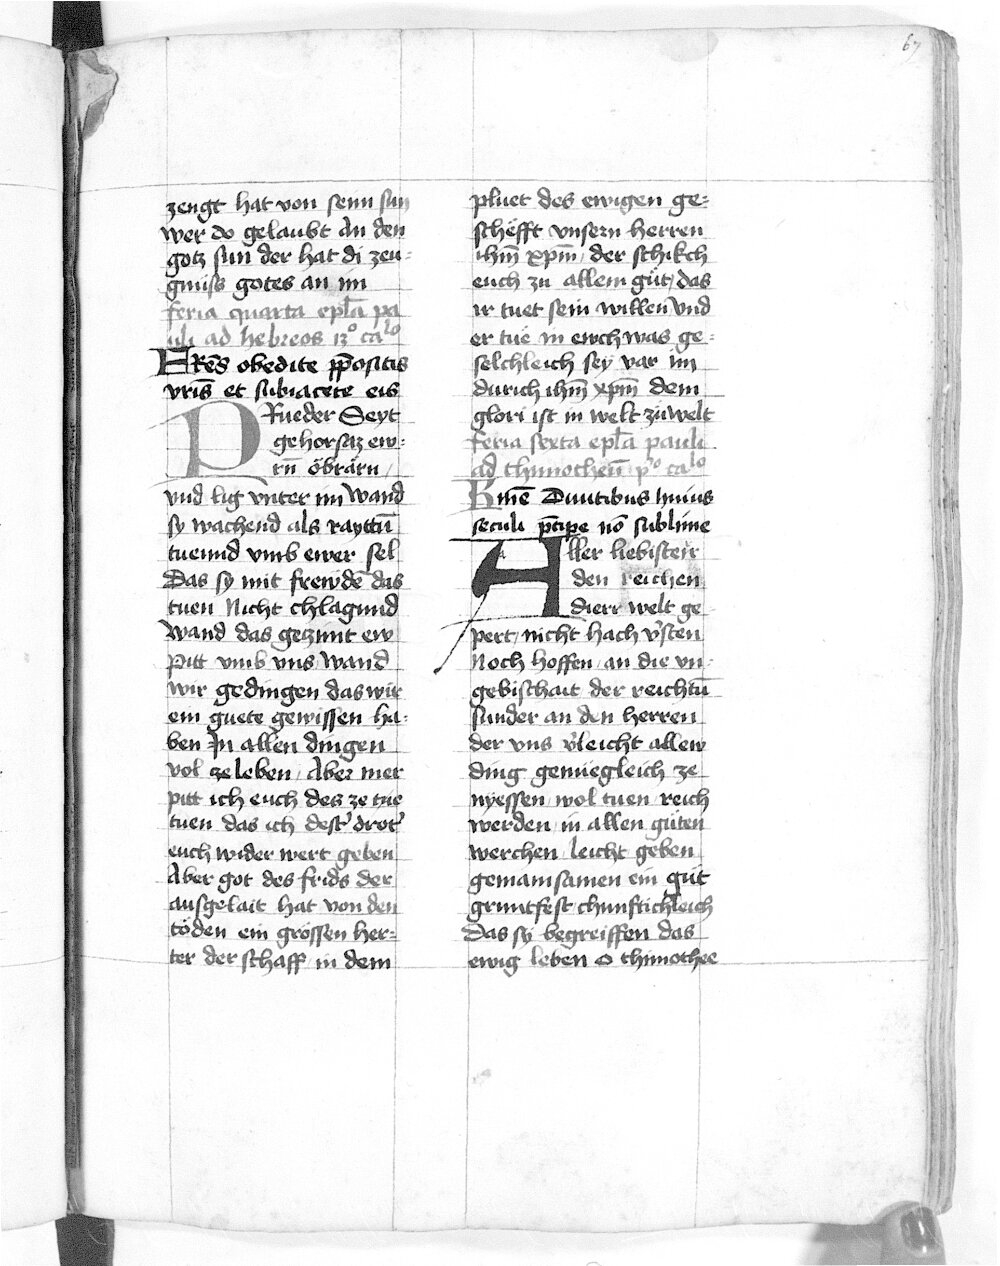 67
zeugt hat von seim sun
wer do gelaubt An den
gotz sun der hat di zeu-
gnuss gotes an im
feria quarta epl̄a pa
uli ad hebreos 13° ca^lo
FRēs obedite p̄positis
vris̄ et subiacete eis
PRueder Seyt
gehorsaz ew-
rn̄ öbrärn
vnd lig vnter im Wand
sy wachend als rayttū
tuennd vmb ewer sel
Das sy mit frewdē das
tuen Nicht chlagund
Wand das gezimt ew
Pitt vmb vns Wand
wir gedingen das wir
ein guete gewissen ha-
ben In allen dingen
vol ze leben Aber mer
pitt ich euch des ze tue
tuen das ich dest' drot'
euch wider wert geben
Aber got des frids der
ausgelait hat von den
töden ein grössen her-
ter der schaff in dem
pluet des ewigen ge-
schefft vnsern herren
ihm̄ xpm̄ der schikch
euch zu allem güt das
ir tuet sein willen Vnd
er tue in ewch was ge-
selchleich sey var im
durich ihm̄ xpm̄ dem
glori ist in welt zu welt
feria sexta epl̄a pauli
ad thimotheū p° ca^lo
Kmē Diuitibus huius
seculi p̄cipe nō sublime
Aller liebister
den reichen
dierr welt ge
pert nicht hach v'sten
Noch hoffen an die vn-
gebischait der reichtū
sunder an den herren
der vns v'leicht allew
ding genuegleich ze
nyessen wol tuen reich
werden in allen guten
werchen leicht geben
gemainsamen ein gut
gruntfest chunftichleich
Das sy begreiffen das
ewig leben O thimothee